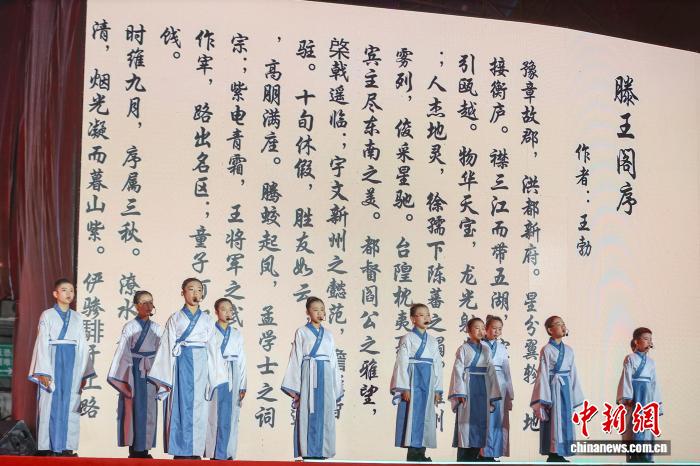 滕王阁序
作者：王勃
豫章故郡，洪都新府。星分翼轸，地
接衡庐。襟三江而带五湖，
引瓯越。物华天宝，龙光射
；人杰地灵，徐孺下陈蕃之榻。 州
雾列，俊采星驰。台隍枕夷
宾主尽东南之美。都督阎公之雅望，
棨戟遥临；宇文新州之懿范，
驻。十旬休假，胜友如云
，高朋满座。腾蛟起凤，孟学士之词
宗；紫电青霜，王将军之武
作宰，路出名区；童子
饯。
时维九月，序属三秋。潦水
清，烟光凝而暮山紫。俨骖騑于上路
中新网
www.
chinanews.com.cn